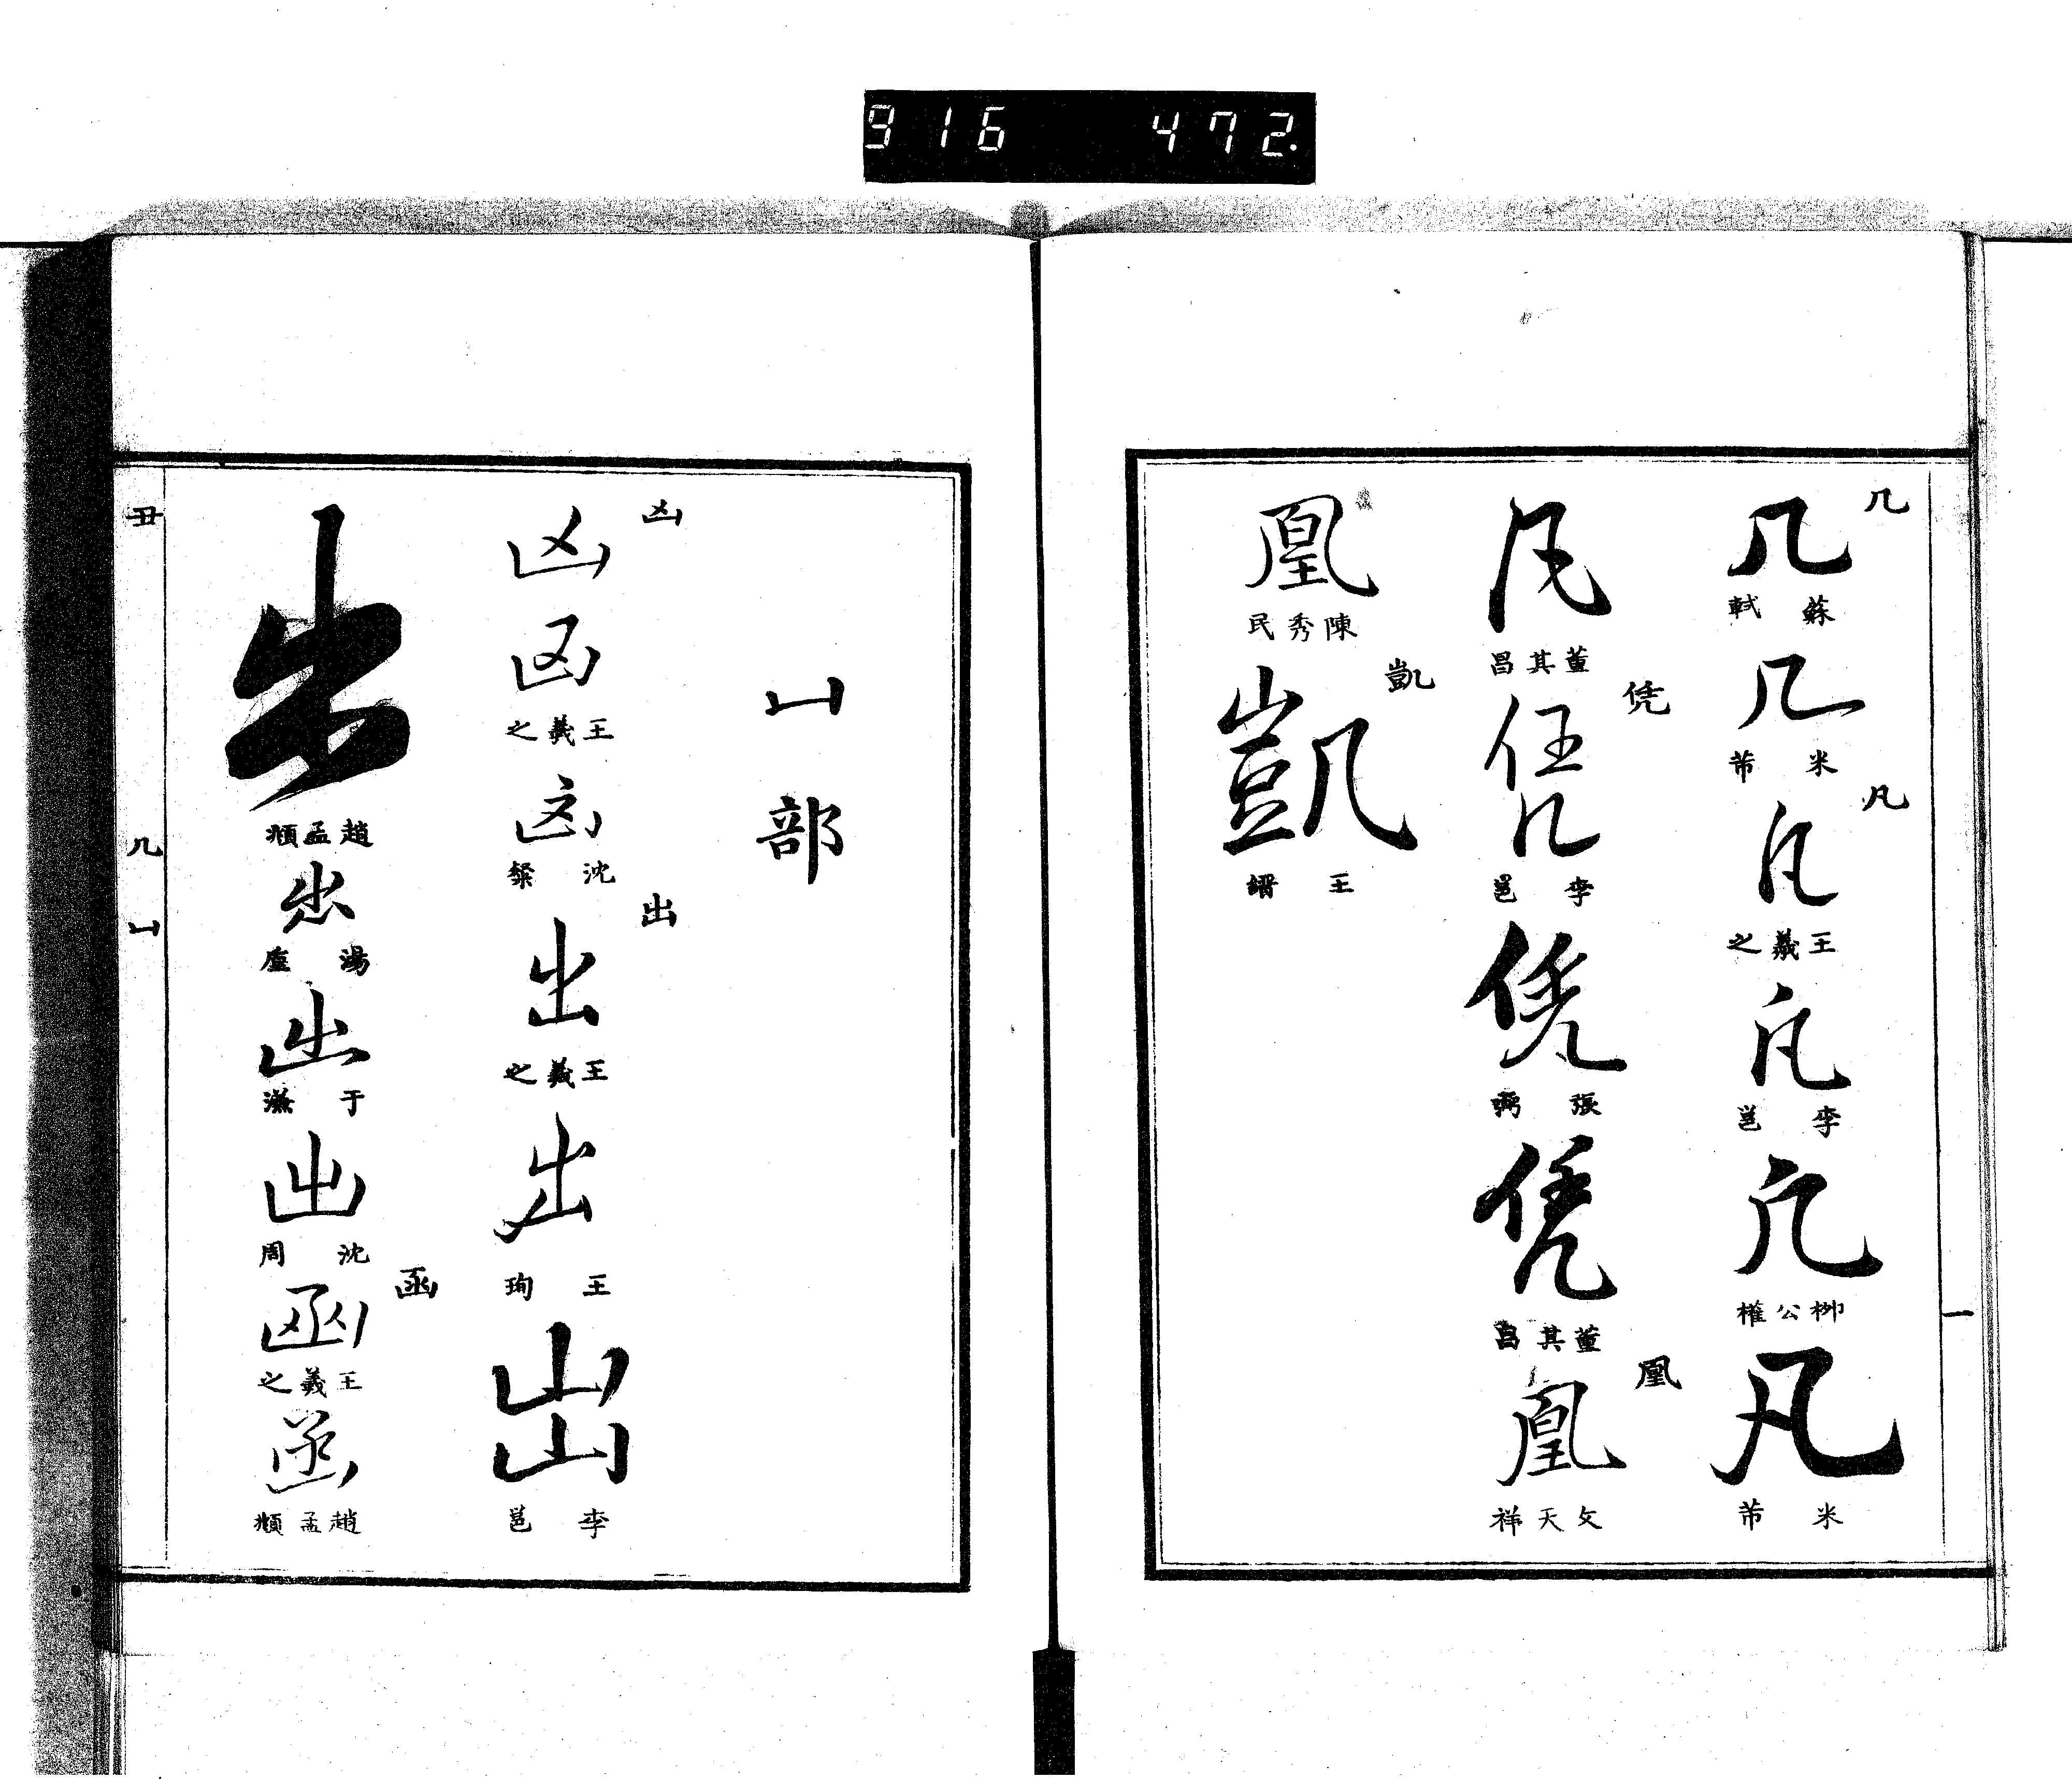 916 472.
几
几
蘇軾
几
米芾
凡
凡
王羲之
凡
李邕
凡
柳公權
凡
米芾
凡
董其昌
凭
凭
李邕
凭
張弼
凭
董其昌
凰
凰
文天祥
凰
陳秀民
凱
凱
王縉
一
凵部
凶
凶
凶
王羲之
凶
沈粲
出
出
王羲之
出
王珣
出
李邕
出
趙孟頫
出
湯盧
出
于濂
出
沈周
函
函
王羲之
函
趙孟頫
丑 几 凵